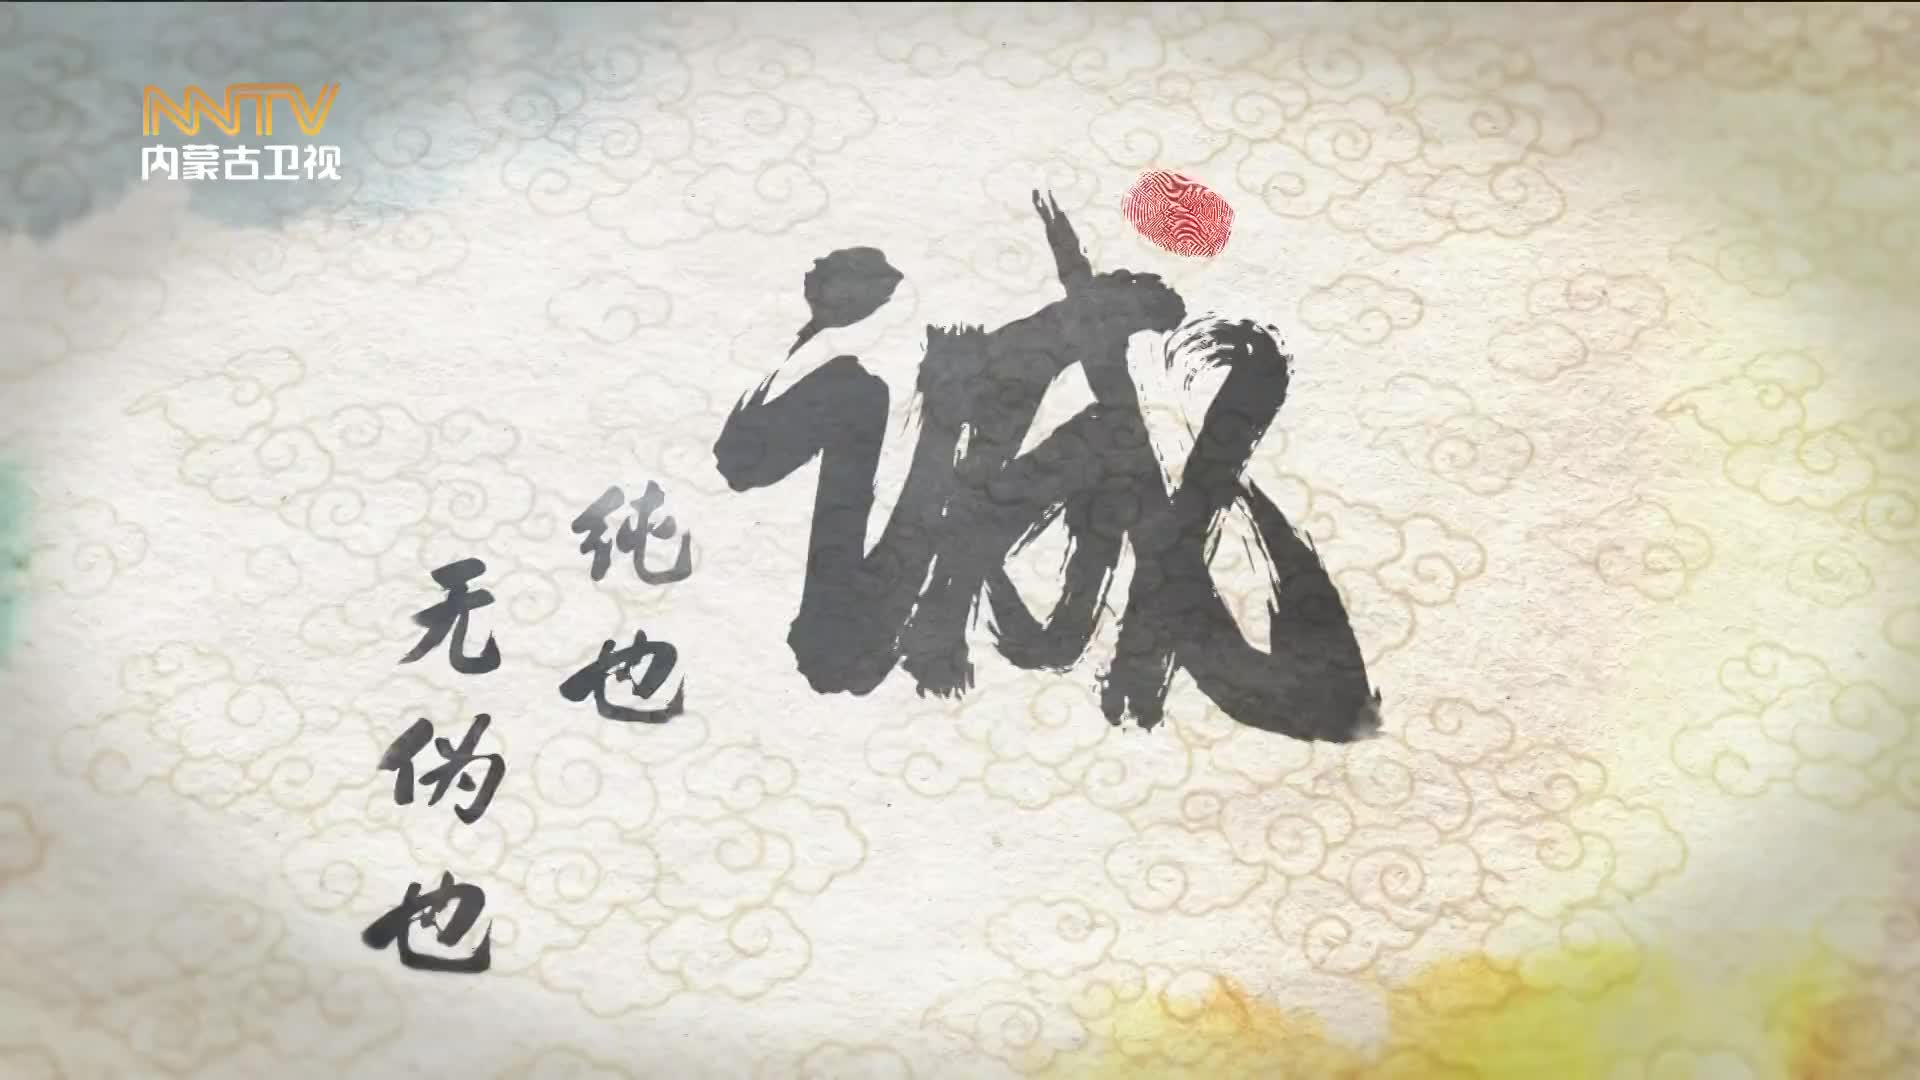 NNTV
内蒙古卫视
诚
纯也
无伪也